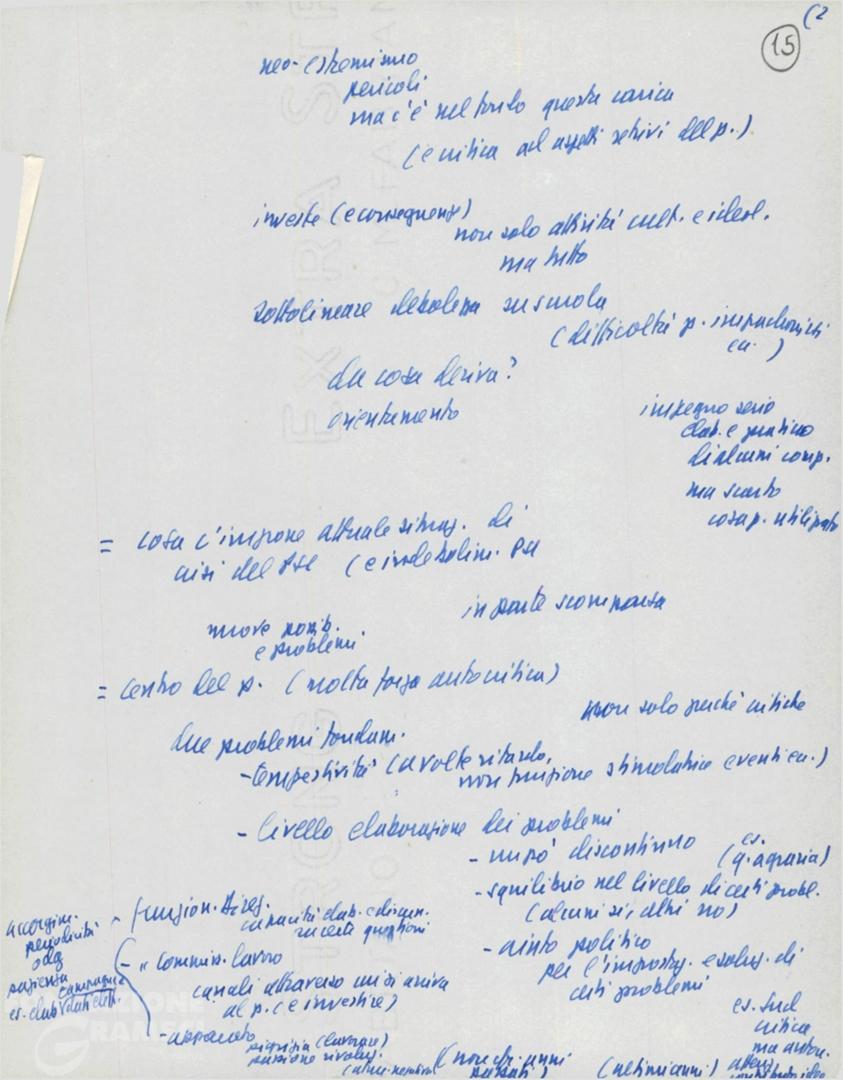 (2
15
neo-estremismo
pericoli
ma c'è nel fondo questa carica
(e critica ad aspetti retrivi del p.)
investe (e conseguenze)
non solo attività cult. e ideol.
ma tutto
sottolineare debolezza su scuola
(difficoltà p. impadronirsi
ecc. )
da cosa deriva?
orientamento
impegno serio
elab. e pratico
di alcuni comp.
ma scarto
cosa p. utilizzato
= cosa c'impone attuale situaz. di
crisi del PSI (e indebolim. PSU
in parte scomparsa
nuove possib.
e problemi
= Centro del p. (molta forza autocritica)
non solo perché critiche
due problemi fondam.
- tempestività (a volte ritardo,
non funzione stimolatrice eventi ecc.)
- livello elaborazione dei problemi
- un po' discontinuo es.
(q. agraria)
- squilibrio nel livello di certi probl.
(alcuni sì, altri no)
- aiuto politico
per l'impostaz. e soluz. di
certi problemi
- funzion. Direz.
capacità elab. e discus.
su certe questioni
- " commis. lavoro
canali attraverso cui si arriva
al p. (e investire)
- apparato
(lavorare)
passione rivoluz.
accorgim.
periodicità
odg
pazienza
campagne
es. elab.
(non di anni
passati)
(ultimi anni)
es. Sud
critica
ma auton.
FONDAZIONE
GRAMSCI
EXTRA STRONG